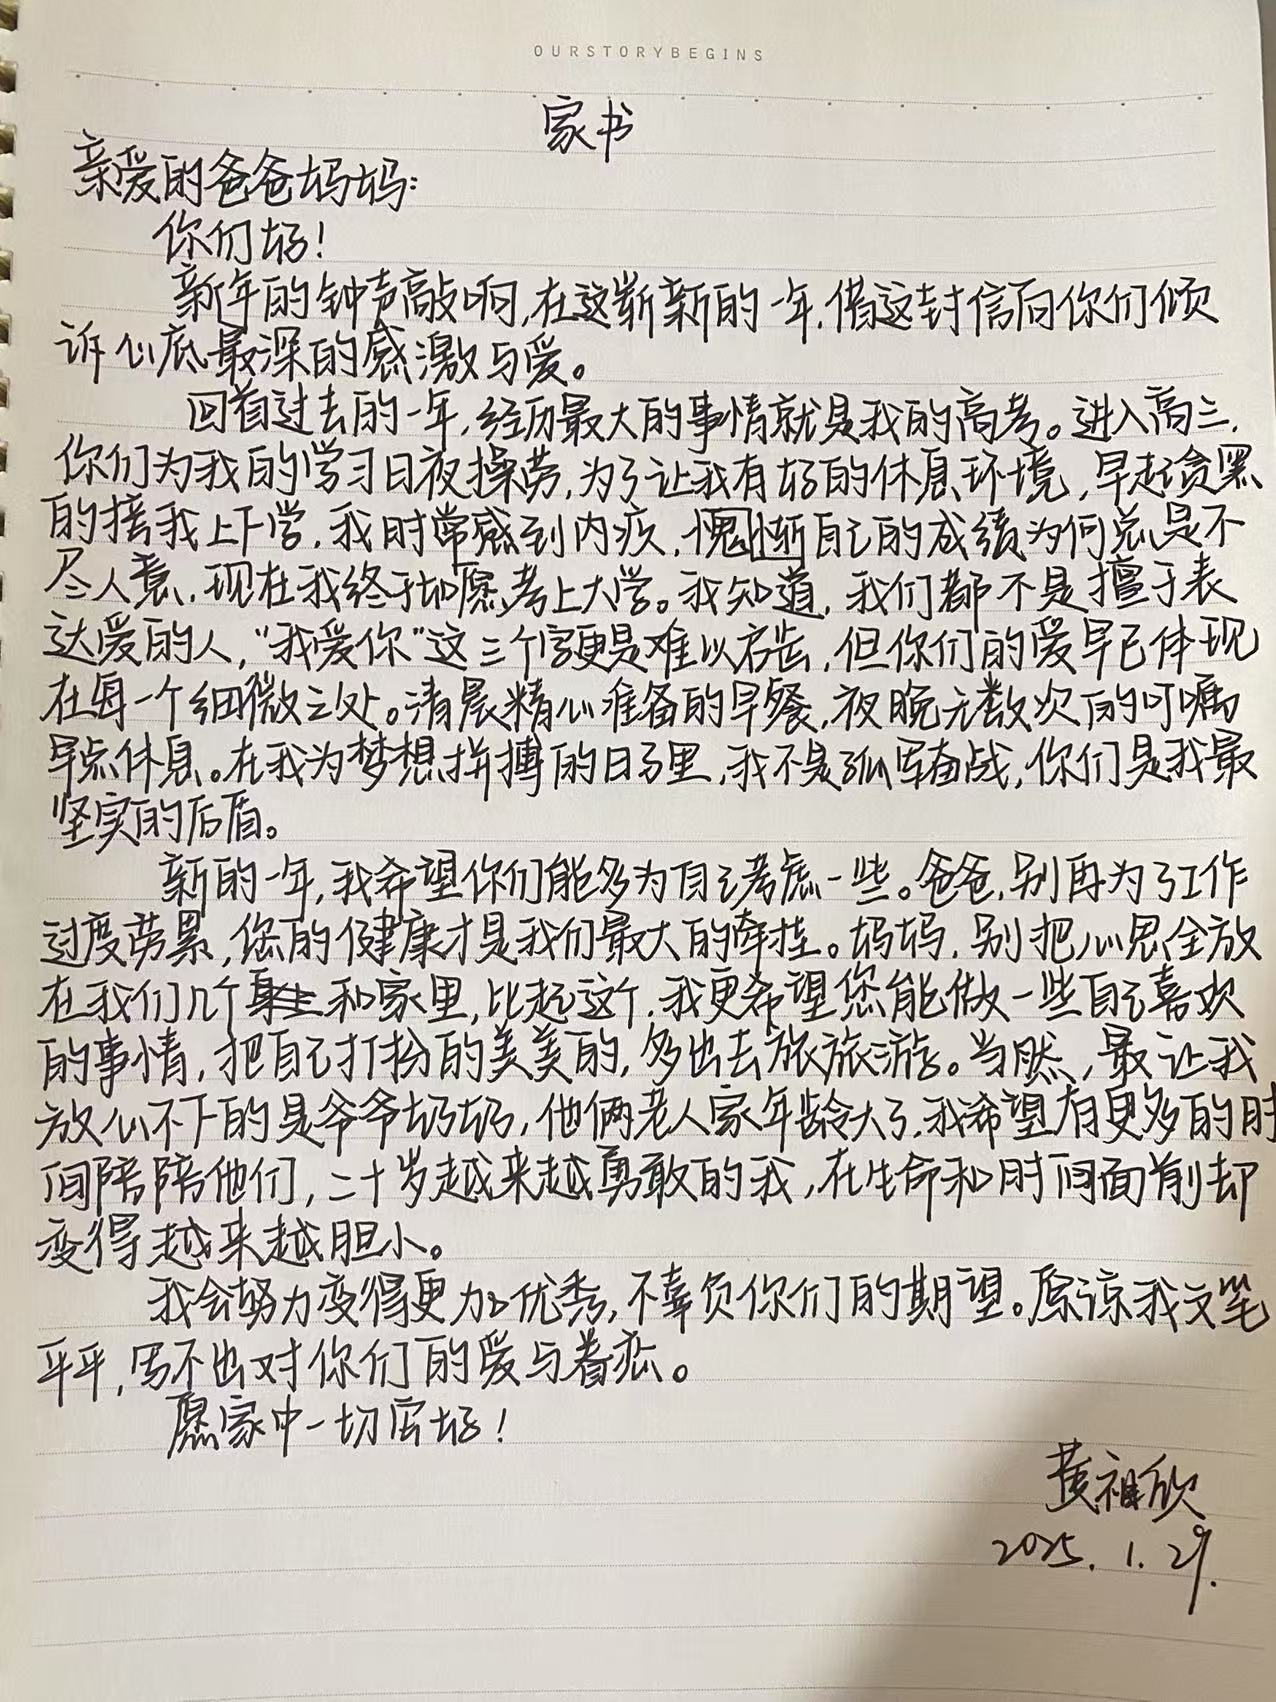 OURSTORYBEGINS
家书
亲爱的爸爸妈妈：
你们好！
新年的钟声敲响，在这崭新的一年，借这封信向你们倾
诉心底最深的感激与爱。
回首过去的一年，经历最大的事情就是我的高考。进入高三，
你们为我的学习日夜操劳，为了让我有好的休息环境，早起贪黑
的接我上下学，我时常感到内疚，愧惭自己的成绩为何总是不
尽人意，现在我终于如愿考上大学。我知道，我们都不是擅于表
达爱的人，“我爱你”这三个字更是难以启齿，但你们的爱早已体现
在每一个细微之处。清晨精心准备的早餐，夜晚无数次的叮嘱
早点休息。在我为梦想拼搏的日子里，我不是孤军奋战，你们是我最
坚实的后盾。
新的一年，我希望你们能多为自己考虑一些。爸爸，别再为了工作
过度劳累，您的健康才是我们最大的牵挂。妈妈，别把心思全放
在我们几个和家里，比起这个，我更希望您能做一些自己喜欢
的事情，把自己打扮的美美的，多出去旅旅游。当然，最让我
放心不下的是爷爷奶奶，他俩老人家年龄大了，我希望有更多的时
间陪陪他们，二十岁越来越勇敢的我，在生命和时间面前却
变得越来越胆小。
我会努力变得更加优秀，不辜负你们的期望。原谅我文笔
平平，写不出对你们的爱与眷恋。
愿家中一切安好！
黄祖欣
2025.1.29.